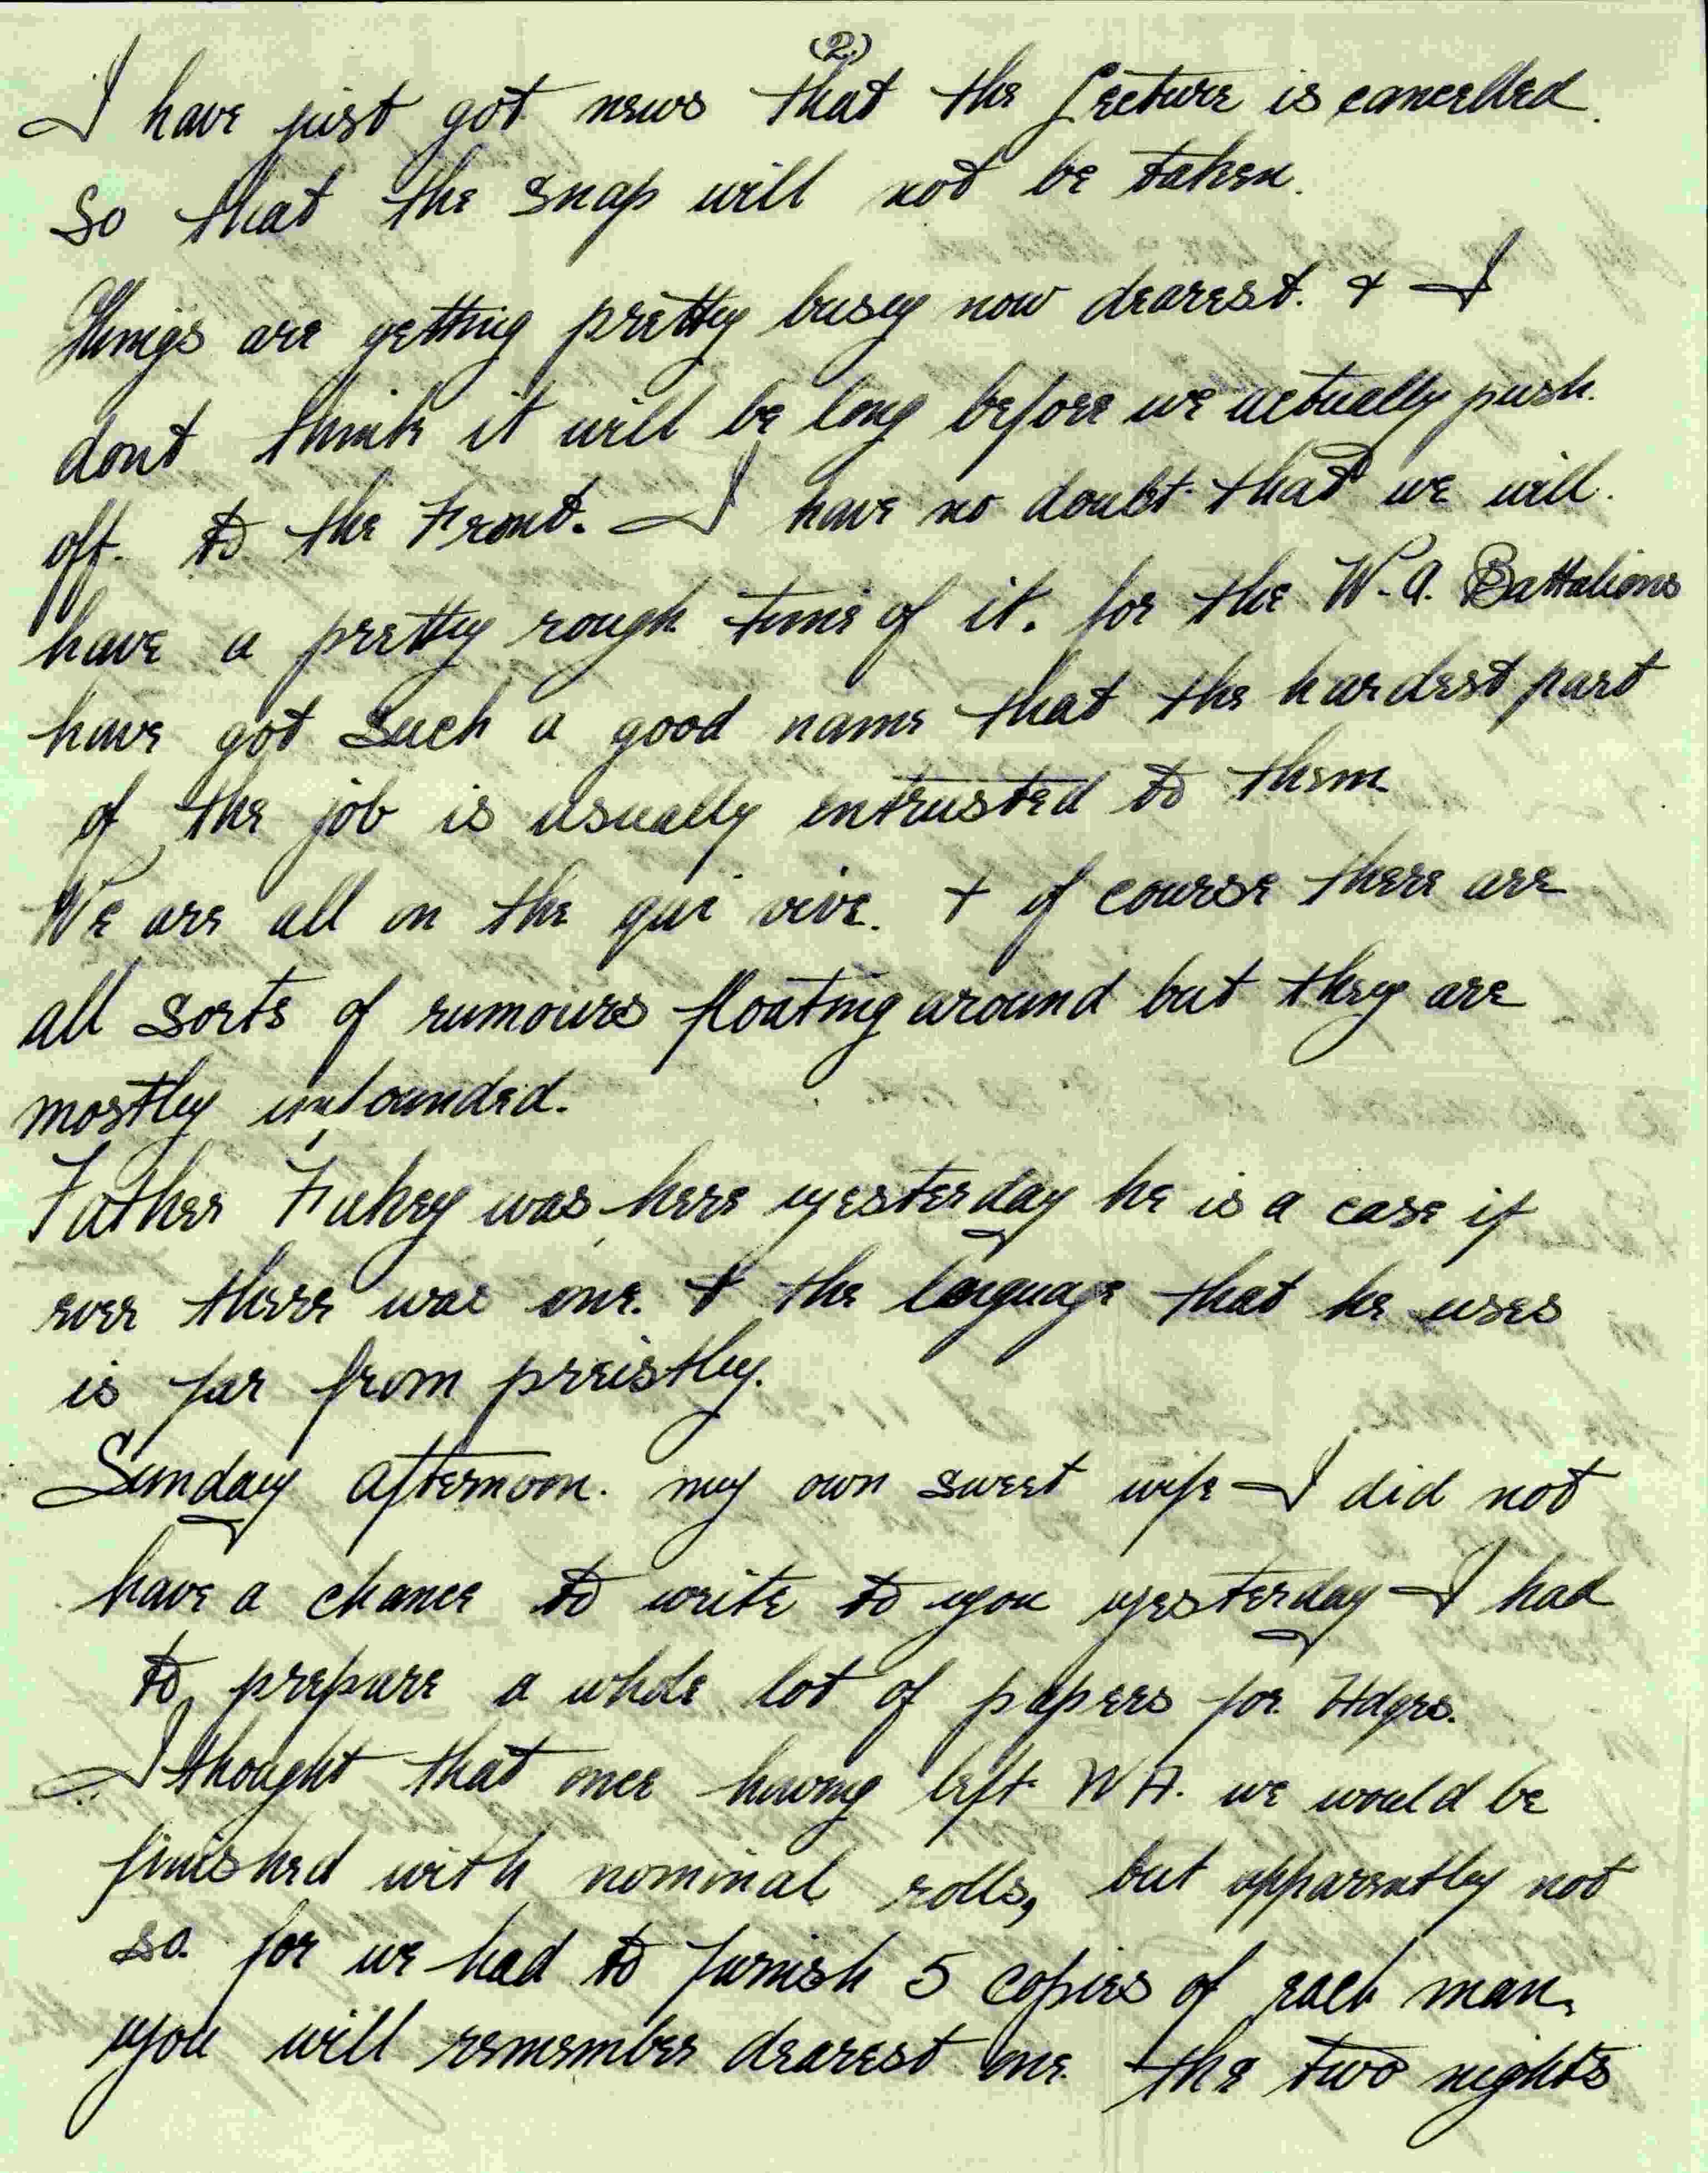 (2.)
I have just got news that the Lecture is cancelled.
so that the snap will not be taken.
Things are getting pretty busy now dearest. & I
dont think it will be long before we actually push.
off. to the Front. I have no doubt that we will.
have a pretty rough time of it. for the W.A. Battalions
have got such a good name that the hardest part
of the job is usually entrusted to them
We are all on the qui vive. + of course there are
all sorts of rumours floating around but they are
mostly unfounded.
Father Fahey was here yesterday he is a case if
ever there was one. & the language that he uses
is far from preistley.
Sunday afternoon. my own sweet wife I did not
have a chance to write to you yesterday I had
to prepare a whole lot of papers for Hdqrs.
I thought that once having left W A. we would be
finished with nominal rolls, but apparently not
so. for we had to furnish 5 copies of each man.
you will remember dearest one the two nights